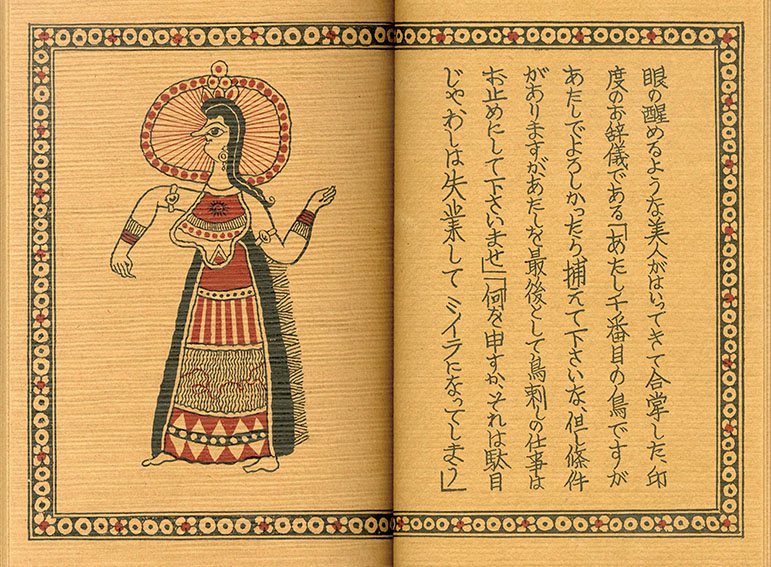 眼の醒めるような美人がはいってきて合掌した、印
度のお辞儀である「あたし千番目の鳥ですが
あたしでよろしかったら捕えて下さいな、但し條件
がありますがあたしを最後として鳥刺しの仕事は
お止めにして下さいませ」「何を申すか、それは駄目
じゃ、わしは失業して ミイラになってしまう」